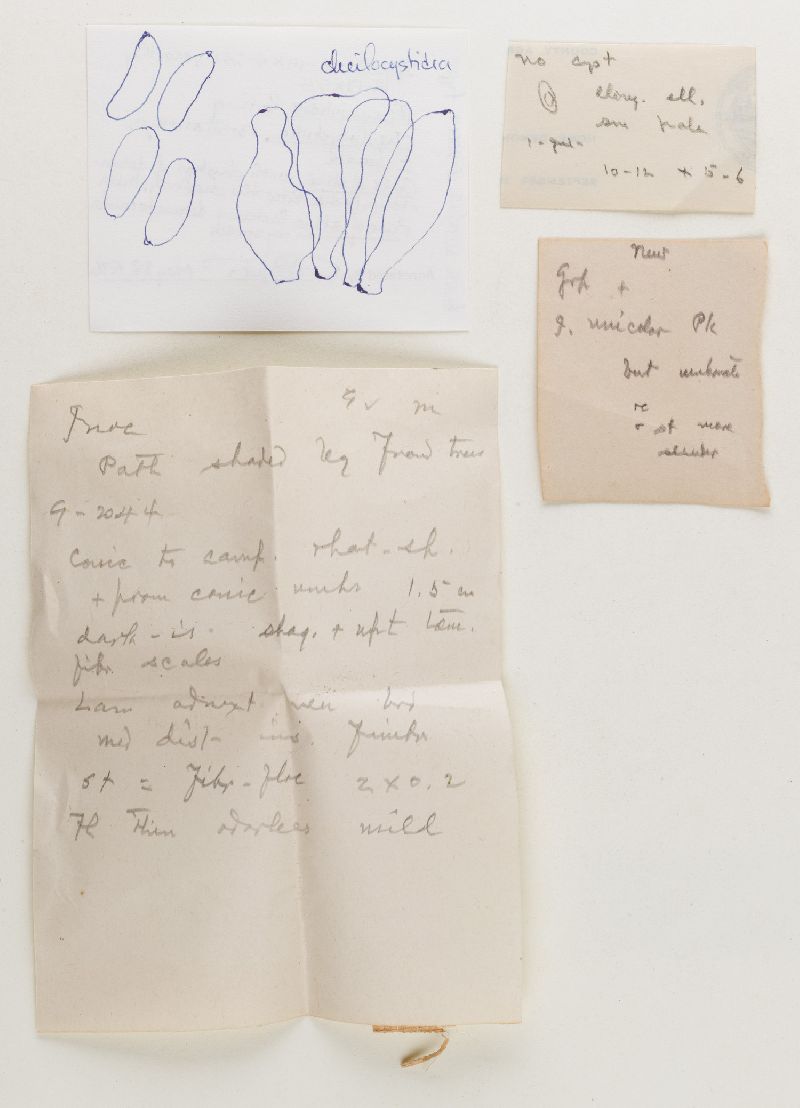 cheilocystidia
no cyst
elong. ell.
sm pale
1-gut-
10-12 x 5-6
New
Grp +
I. unicolor Pk
but umbonate
st more
slender
Inoc
Path shaded by Frond trees
conic to camp. rhat-sh.
+ prom conic umbo 1.5 cm
dark-is. shag. + upt tom.
fibr scales
Lam adnext ven bro
med dist- ins. fimbr
st = fibr-floc 2 x 0.2
Fl thin odorless mild